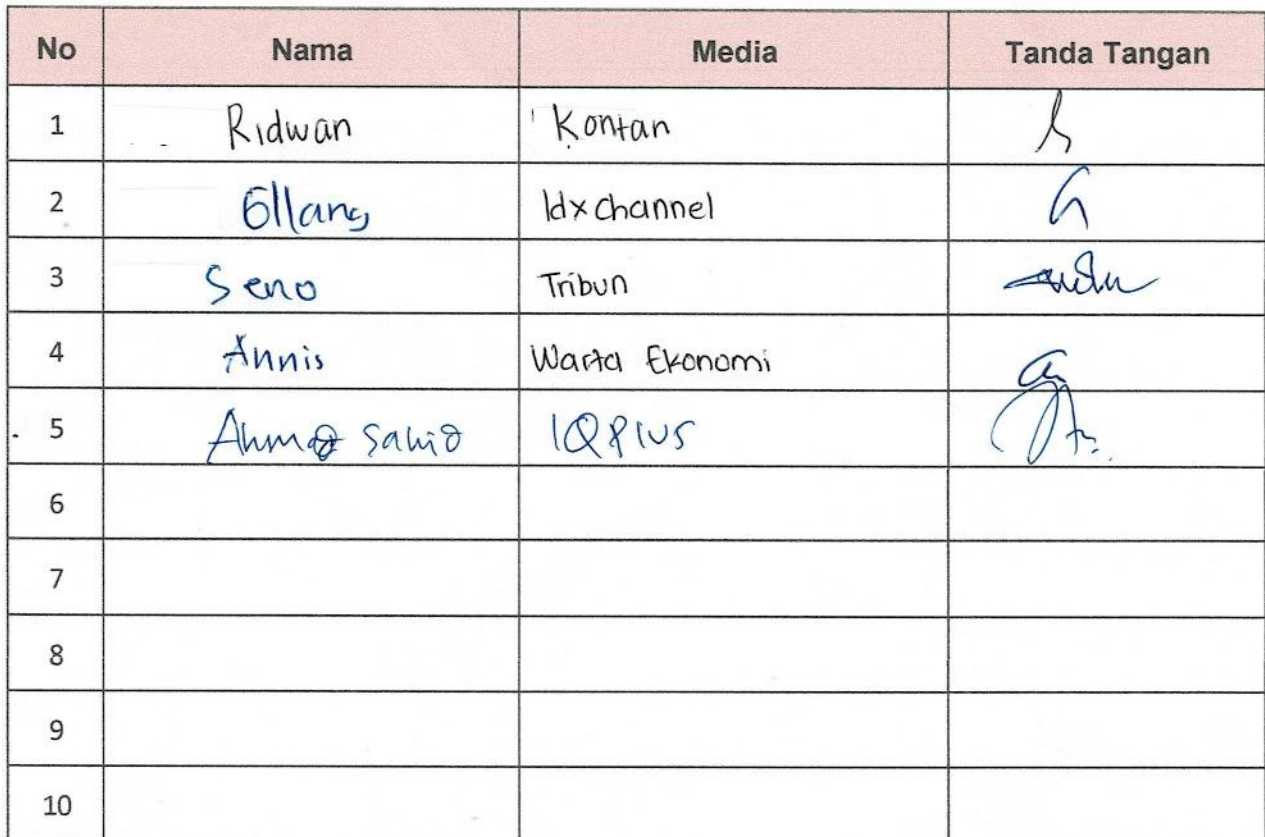 No Nama Media Tanda Tangan
1 Ridwan Kontan
2 Gilang Idx channel
3 Seno Tribun
4 Annis Warta Ekonomi
5 Ahmad Sahid IQPlus
6
7
8
9
10